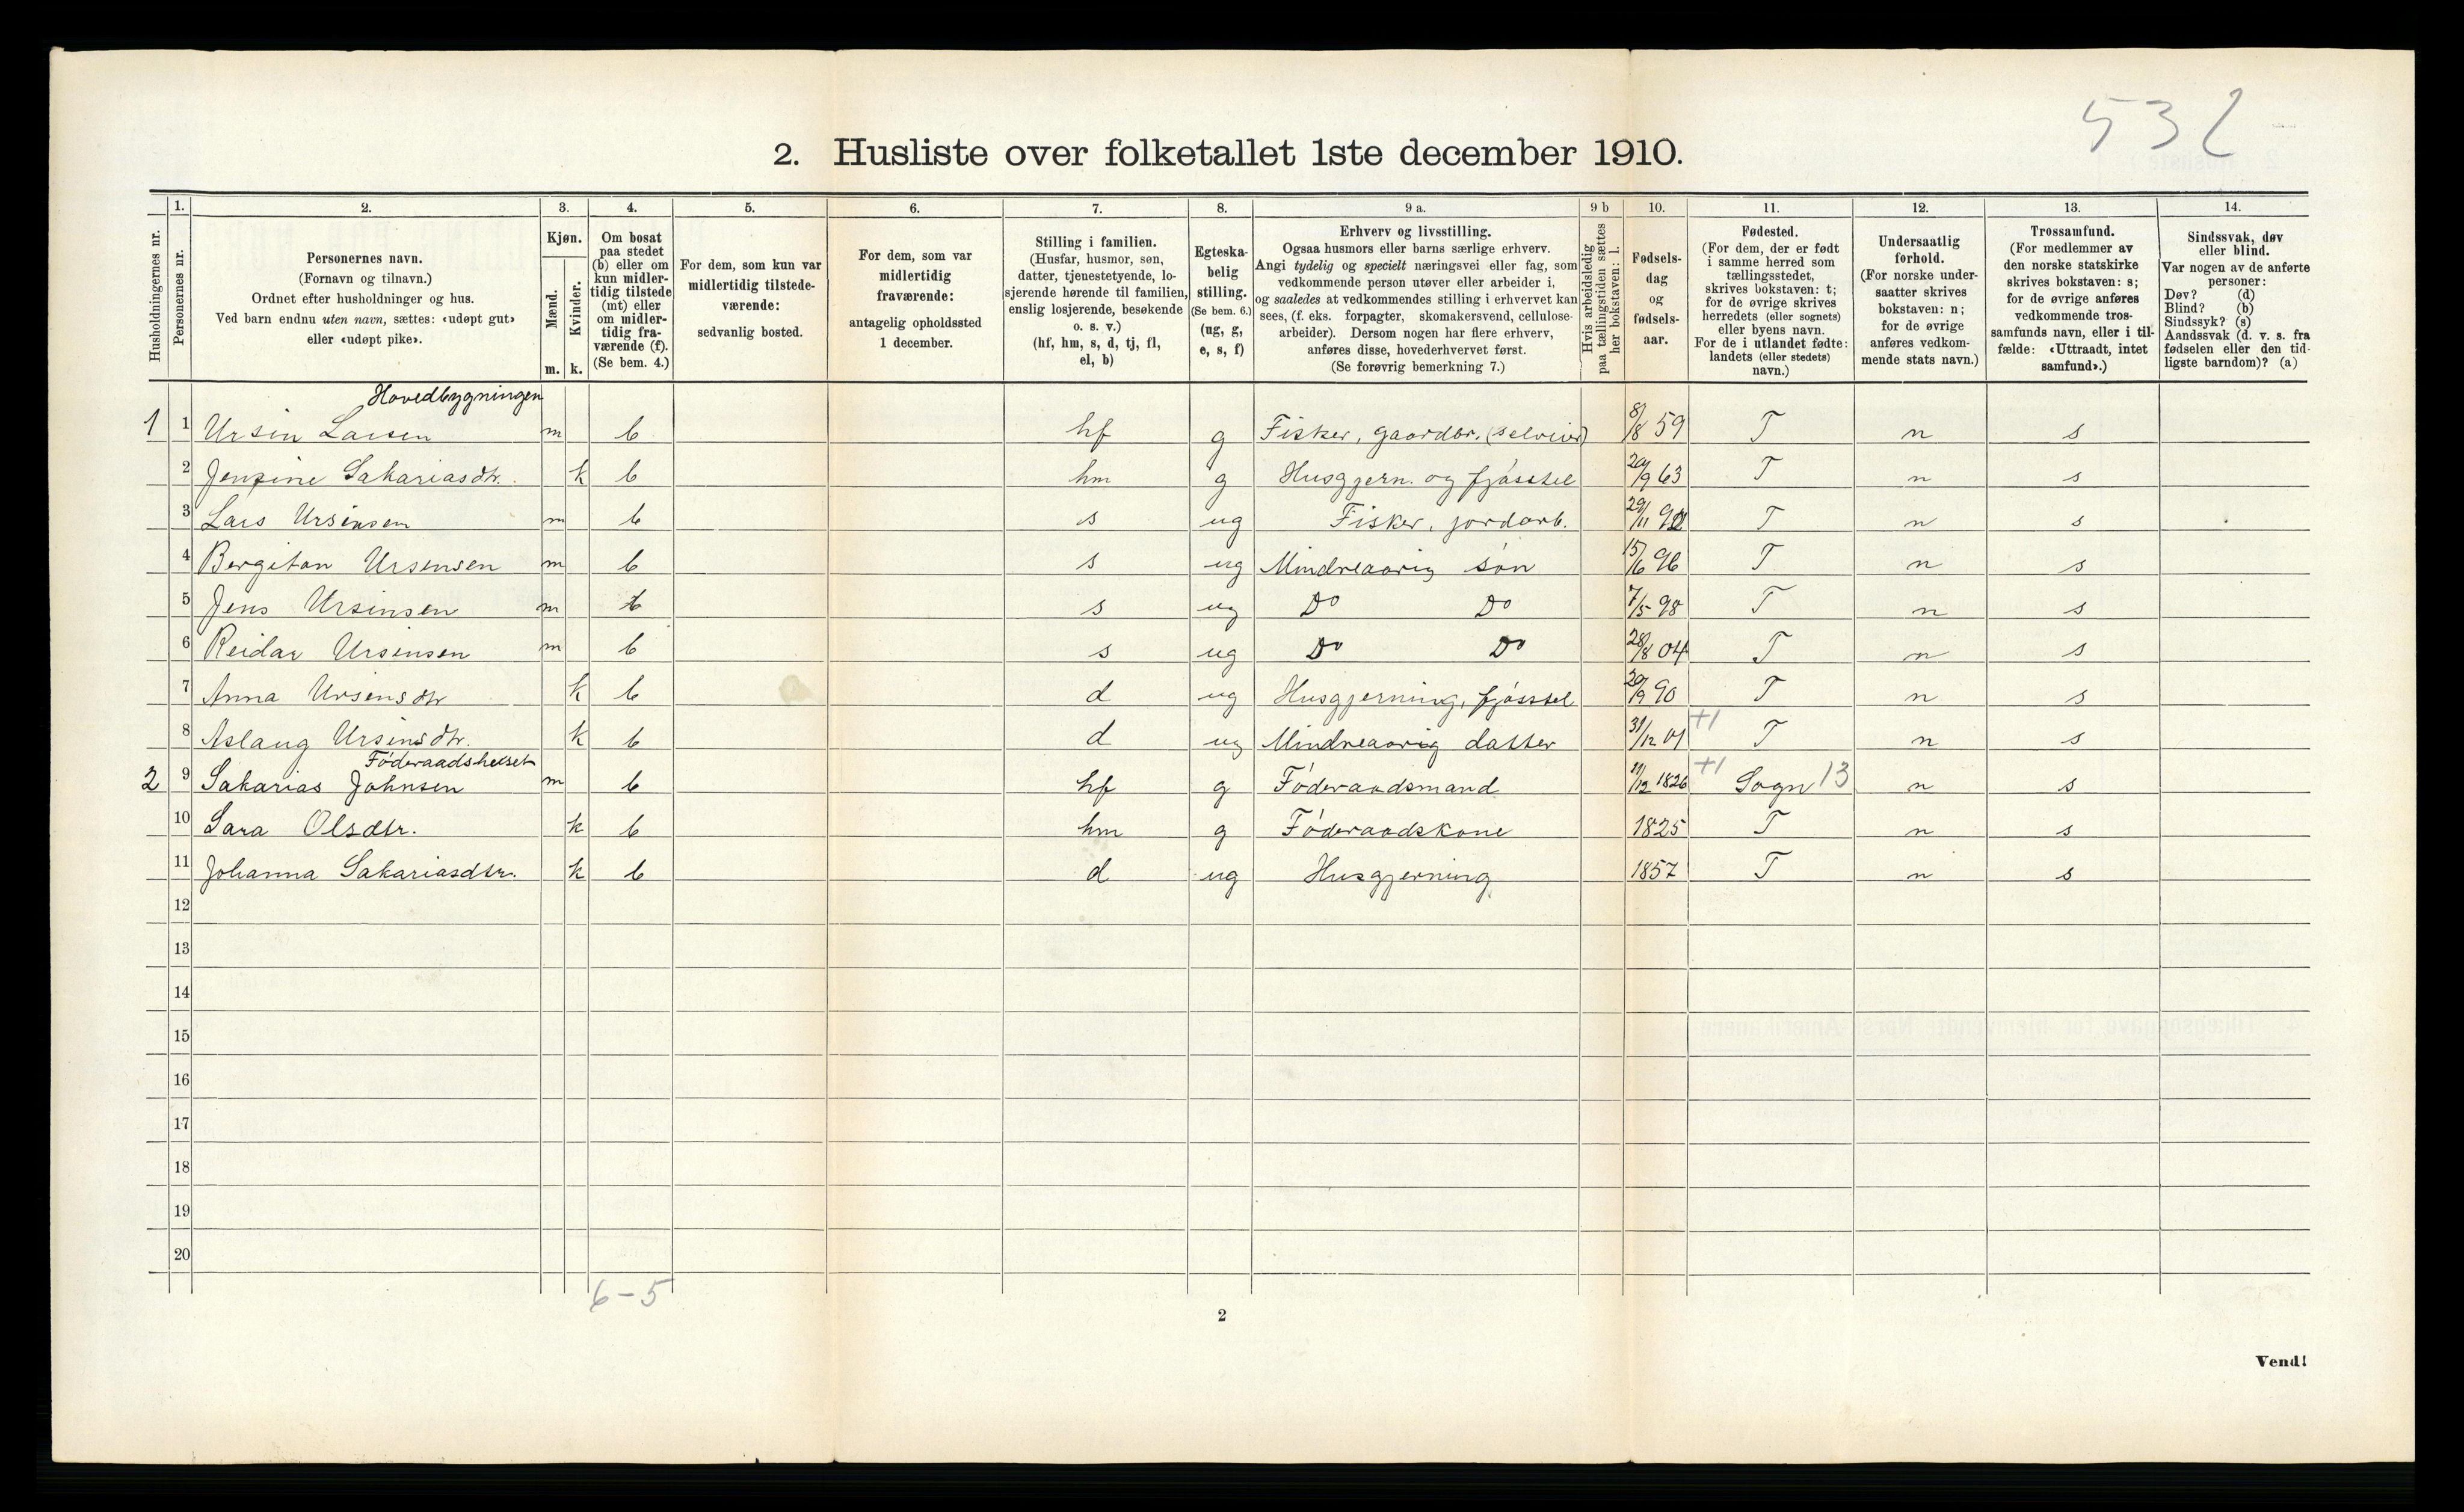 532
2. Husliste over folketallet 1ste december 1910.
Husholdningernes nr.
1.
Personernes nr.
2.
Personernes navn.
(Fornavn og tilnavn.)
Ordnet efter husholdninger og hus.
Ved barn endnu uten navn, sættes: «udøpt gut»
eller «udøpt pike».
3.
Kjøn.
Mænd.
Kvinder.
m. k.
4.
Om bosat
paa stedet
(b) eller om
kun midler-
tidig tilstede
(mt) eller
om midler-
tidig fra-
værende (f).
(Se bem. 4.)
5.
For dem, som kun var
midlertidig tilstede-
værende:
sedvanlig bosted.
6.
For dem, som var
midlertidig
fraværende:
antagelig opholdssted
1 december.
7.
Stilling i familien.
(Husfar, husmor, søn,
datter, tjenestetyende, lo-
sjerende hørende til familien,
enslig losjerende, besøkende
o. s. v.)
(hf, hm, s, d, tj, fl,
el, b)
8.
Egteska-
belig
stilling.
(Se bem. 6.)
(ug, g,
e, s, f)
9 a.
Erhverv og livsstilling.
Ogsaa husmors eller barns særlige erhverv.
Angi tydelig og specielt næringsvei eller fag, som
vedkommende person utøver eller arbeider i,
og saaledes at vedkommendes stilling i erhvervet kan
sees, (f. eks. forpagter, skomakersvend, cellulose-
arbeider). Dersom nogen har flere erhverv,
anføres disse, hovederhvervet først.
(Se forøvrig bemerkning 7.)
9 b
Hvis arbeidsledig
paa tællingstiden sættes
her bokstaven: l.
10.
Fødsels-
dag
og
fødsels-
aar.
11.
Fødested.
(For dem, der er født
i samme herred som
tællingsstedet,
skrives bokstaven: t;
for de øvrige skrives
herredets (eller sognets)
eller byens navn.
For de i utlandet fødte:
landets (eller stedets)
navn.)
12.
Undersaatlig
forhold.
(For norske under-
saatter skrives
bokstaven: n;
for de øvrige
anføres vedkom-
mende stats navn.)
13.
Trossamfund.
(For medlemmer av
den norske statskirke
skrives bokstaven: s;
for de øvrige anføres
vedkommende tros-
samfunds navn, eller i til-
fælde: «Uttraadt, intet
samfund».)
14.
Sindssvak, døv
eller blind.
Var nogen av de anførte
personer:
Døv? (d)
Blind? (b)
Sindssyk? (s)
Aandssvak (d. v. s. fra
fødselen eller den tid-
ligste barndom)? (a)
Hovedbygningen
1 1 Ursin Larsen m b hf g Fisker, gaardbr. (selveier) 8/8 59 T n s
2 Jensine Sakariasdtr. k b hm g Husgjern. og fjösstel 20/9 63 T n s
3 Lars Ursinsen m b s ug Fisker, jordarb. 29/11 92 T n s
4 Bergiton Ursinsen m b s ug Mindreaarig søn 15/6 96 T n s
5 Jens Ursinsen m b s ug Do Do 7/5 98 T n s
6 Reidar Ursinsen m b s ug Do Do 28/8 04 T n s
7 Anna Ursinsdtr k b d ug Husgjerning, fjösstel 20/9 90 T n s
8 Aslaug Ursinsdtr. k b d ug Mindreaarig datter 31/12 01 +1 T n s
Föderaadshuset
2 9 Sakarias Johnsen m b hf g Föderaadsmand 11/12 1826 +1 Sogn 13 n s
10 Sara Olsdtr. k b hm g Föderaadskone 1825 T n s
11 Johanna Sakariasdtr. k b d ug Husgjerning 1857 T n s
12
13
14
15
16
17
18
19
20
6-5
2
Vend!